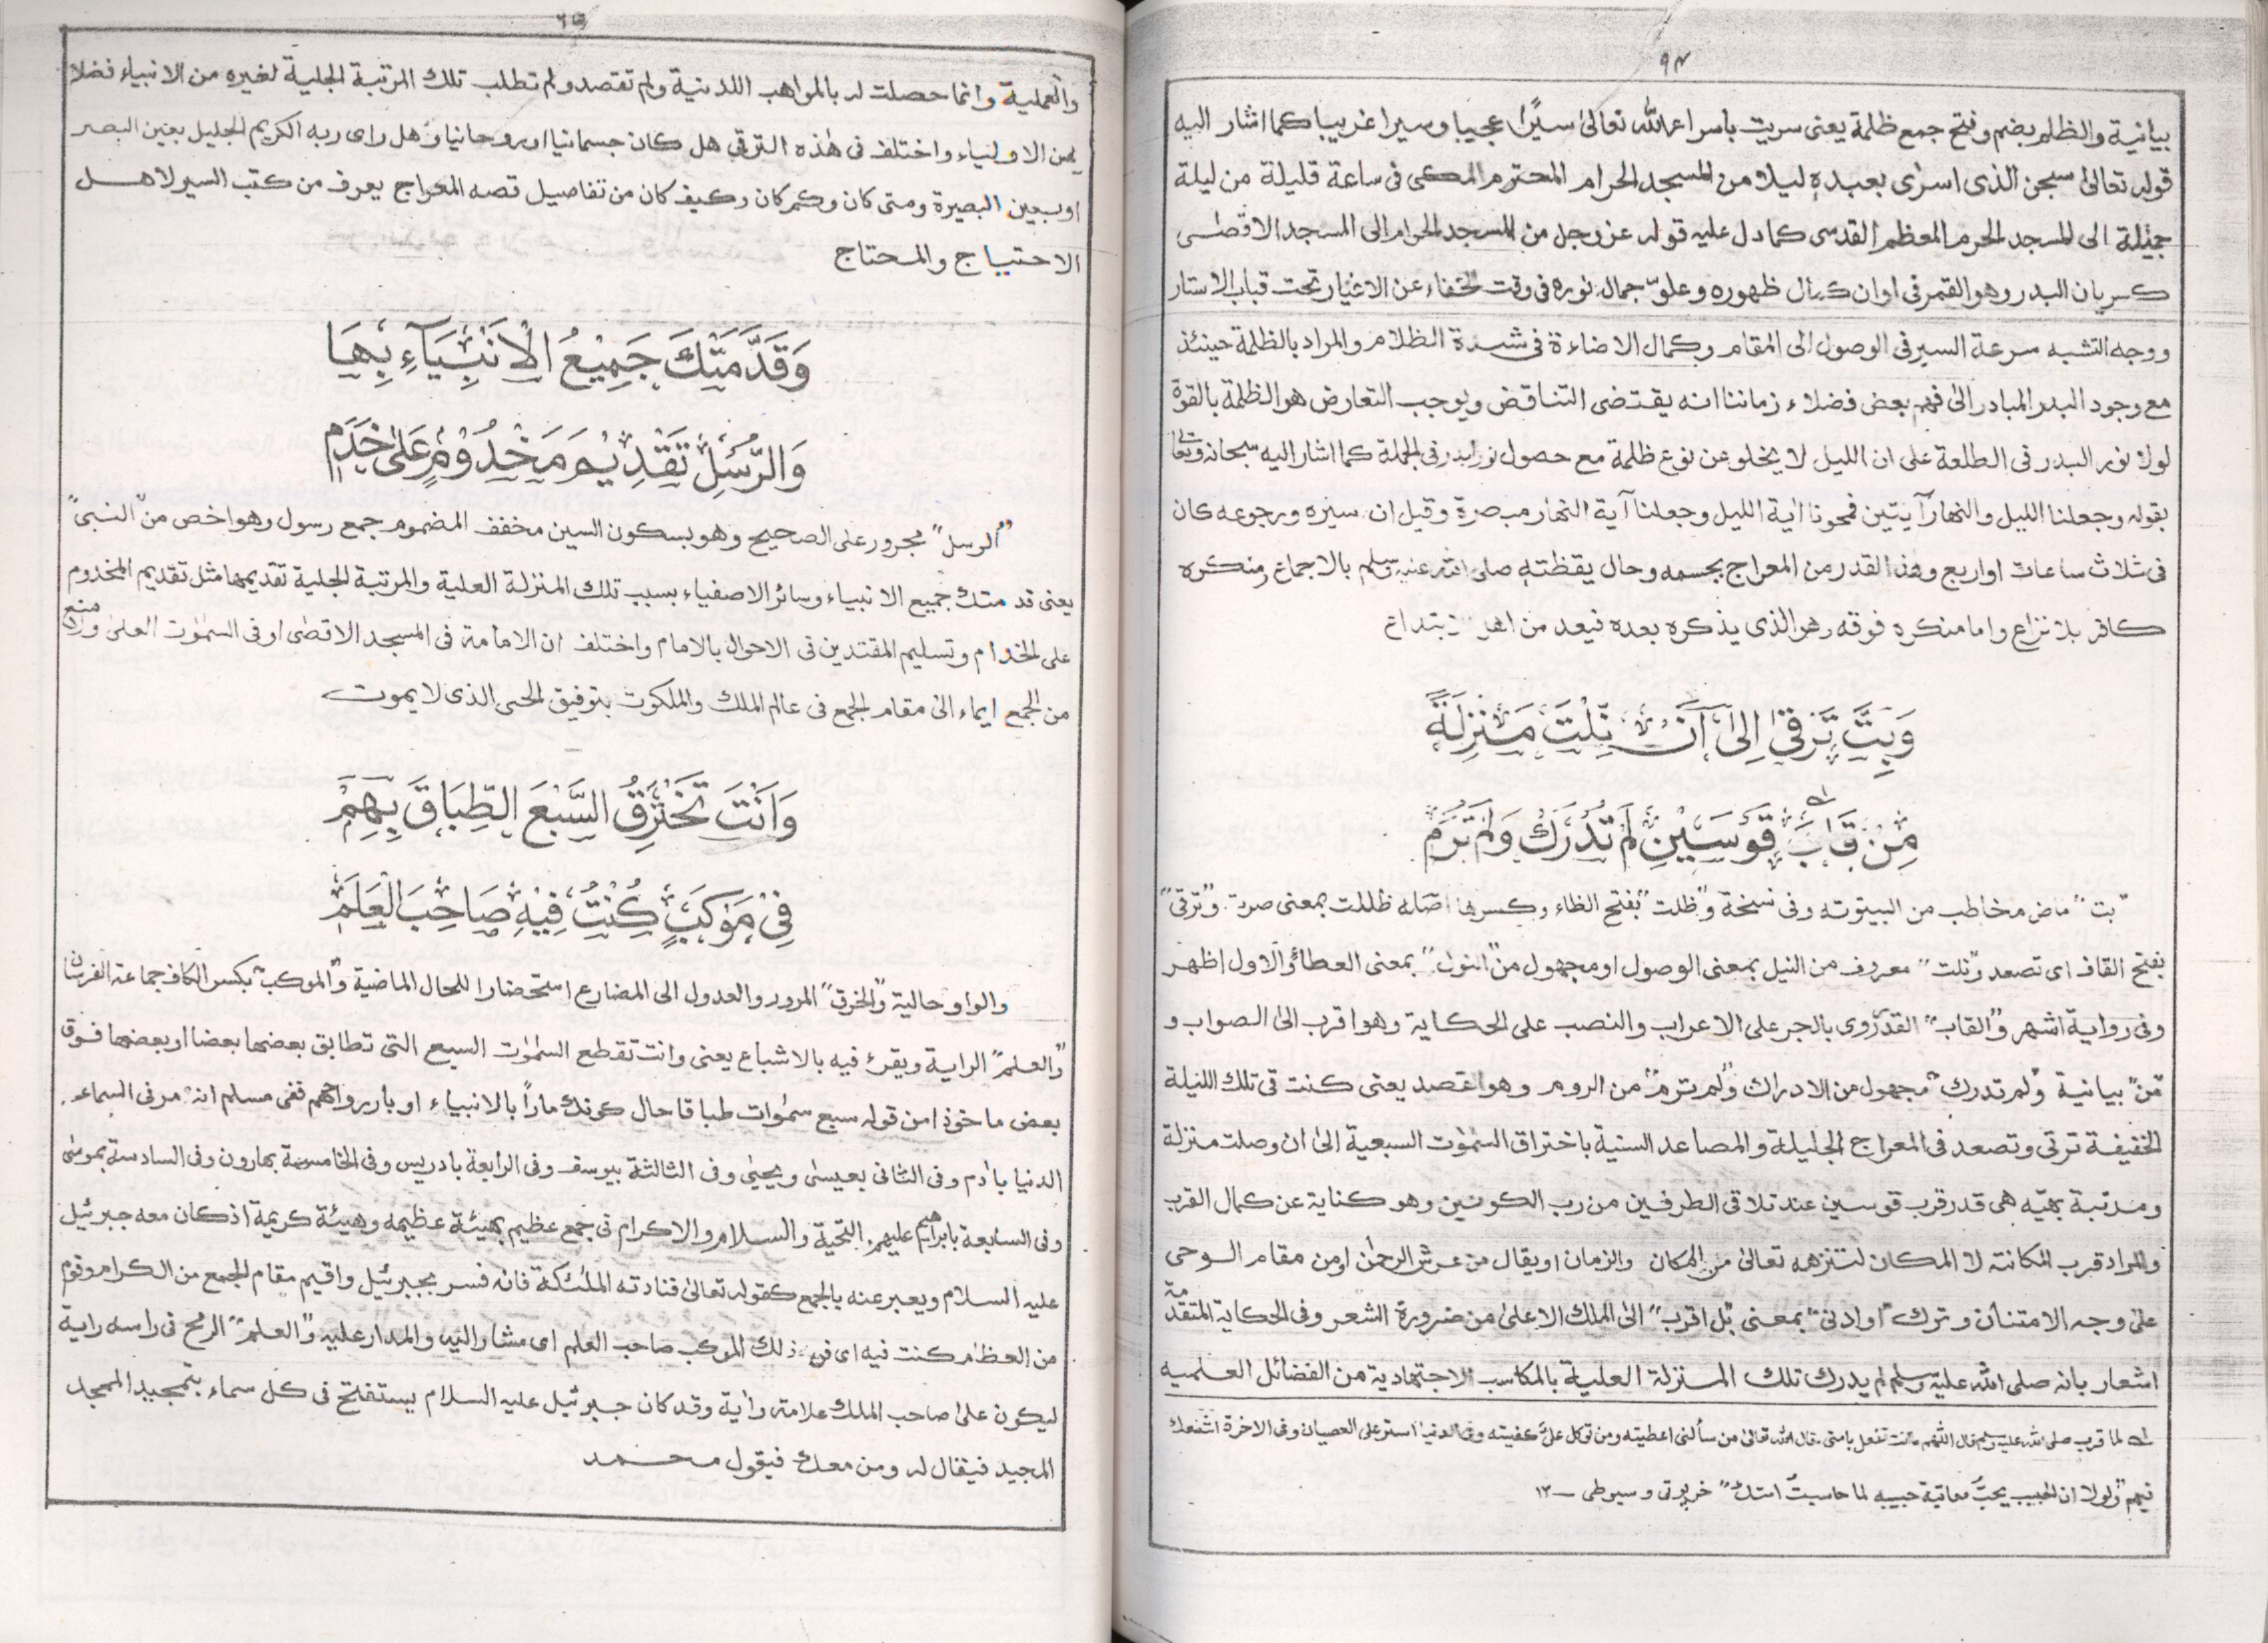 ٩٤
بيانية والظلم بضم وفتح جمع ظلمة يعنى سريت باسراء الله تعالىٰ سيرًا عجيبا وسيرا غريبا كما اشار اليه
قوله تعالىٰ سبحٰن الذى اسرٰى بعبدهٖ ليلا من المسجد الحرام المحترم المكى فى ساعة قليلة من ليلة
جميلة الى المسجد الحرم المعظم القدسى كما دل عليه قوله عز وجل من المسجد الحرام الى المسجد الاقصٰى
كسريان البدر وهو القمر فى اوان كمال ظهوره وعلوّ جمال نوره فى وقت الخفاء عن الاغيار تحت قباب الاستار
ووجه التشبه سرعة السير فى الوصول الى المقام وكمال الاضاءة فى شدة الظلام والمراد بالظلمة حينئذ
مع وجود البدر المبادر الىٰ فهم بعض فضلاء زماننا انه يقتضى التناقض ويوجب التعارض هو الظلمة بالقوة
لولا نور البدر فى الطلعة على ان الليل لا يخلو عن نوع ظلمة مع حصول نور البدر فى الجملة كما اشار اليه سبحانه وتعالىٰ
بقوله وجعلنا الليل والنهار آيتين فمحونا اية الليل وجعلنا آية النهار مبصرة وقيل ان سيره ورجوعه كان
فى ثلاث ساعات او اربع وهذا القدر من المعراج بجسمه وحال يقظتهٖ صلى الله عليه وسلم بالاجماع ومنكره
كافر بلا نزاع واما منكره فوقه وهو الذى يذكره بعده فيعد من اهل الابتداع
وَبِتَّ تَرْقىٰ اِلىٰ اَنْ نِّلْتَ مَنْزِلَةً
مِنْ قَابَ قَوْسَيْنِ لَمْ تُدْرَكْ وَلَمْ تُرَمْ
"بت" ماض مخاطب من البيتوته وفى نسخة و"ظلت" بفتح الظاء وكسرها اصله ظللت بمعنى صرت. و"ترقى"
بفتح القاف اى تصعد و"نلت" معروف من النيل بمعنى الوصول او مجهول من "النول" بمعنى العطاء والاول اظهر
وفى رواية اشهر و"القاب" القدر روى بالجر على الاعراب والنصب على الحكاية وهو اقرب الى الصواب و
"من" بيانية و"لم تدرك" مجهول من الادراك و"لم ترم" من الروم وهو القصد يعنى كنت فى تلك الليلة
الخفيفة ترقى وتصعد فى المعراج الجليلة والمصاعد السنية باختراق السمٰوٰت السبعية الىٰ ان وصلت منزلة
ومرتبة بهيّه هى قدر قرب قوسين عند تلاقى الطرفين من رب الكونين وهو كناية عن كمال القرب
والمراد قرب المكانته لا المكان لتنزهه تعالىٰ من المكان والزمان او يقال من عرش الرحمٰن او من مقام الوحى
علىٰ وجه الامتنان وترك "او ادنىٰ" بمعنى "بل اقرب" الى الملك الاعلىٰ من ضرورة الشعر وفى الحكاية المتقدمة
اشعار بانه صلى الله عليه وسلم لم يدرك تلك المنزلة العلية بالمكاسب الاجتهادية من الفضائل العلميه
له لما قرب صلى الله عليه وسلم قال اللهم ما انت تفعل بامتى. قال الله تعالىٰ من سألنى اعطيته ومن توكل علىّ كفيته وفى الدنيا استر على العصيان وفى الاخرة اشفعك
فيهم "ولولا ان الحبيب يحبّ معاتبة حبيبه لما حاسبتُ امتك" خرپوتى و سيوطى ــ ١٢
والعملية وانما حصلت له بالمواهب اللدنية ولم تقصد ولم تطلب تلك المرتبة الجلية لغيره من الانبياء فضلا
عن الاولياء واختلف فى هٰذه الترقى هل كان جسمانيا او روحانيا وهل راى ربه الكريم الجليل بعين البصر
او بعين البصيرة ومتى كان وكم كان وكيف كان من تفاصيل قصه المعراج يعرف من كتب السير لاهل
الاحتياج والمحتاج
وَقَدَّمَتْكَ جَمِيْعُ الْاَنْبِيَآءِ بِهَا
وَالرُّسْلِ تَقْدِيْمَ مَخْدُوْمٍ عَلىٰ خَدَمٖ
"الرسل" مجرور على الصحيح وهو بسكون السين مخفف المضموم جمع رسول وهو اخص من "النبى"
يعنى قد متك جميع الانبياء وسائر الاصفياء بسبب تلك المنزلة العلية والمرتبة الجلية تقديمها مثل تقديم المخدوم
على الخدام وتسليم المقتدين فى الاحوال بالامام واختلف ان الامامة فى المسجد الاقصٰى او فى السمٰوٰت العلىٰ
من الجمع ايماء الىٰ مقام الجمع فى عالم الملك والملكوت بتوفيق الحى الذى لا يموت
وَاَنْتَ تَخْتَرِقُ السَّبْعَ الطِّبَاقَ بِهِمْ
فِىْ مَوْكِبٍ كُنْتَ فِيْهِ صَاحِبَ الْعَلَمٖ
والواو حالية و"الخرق" المرور والعدول الى المضارع استحضارا للحال الماضية و"الموكب" بكسر الكاف جماعة الفرسان
و"العلم" الراية ويقرء فيه بالاشباع يعنى وانت تقطع السمٰوٰت السبع التى تطابق بعضها بعضا او بعضها فوق
بعض ماخوذا من قوله سبع سمٰوات طباقا حال كونك مارًّا بالانبياء او بارواحهم ففى مسلم انهٗ مر فى السماء
الدنيا باٰدم وفى الثانى بعيسىٰ ويحيٰى وفى الثالثة بيوسف وفى الرابعة بادريس وفى الخامسة بهارون وفى السادسة بموسٰى
وفى السابعة بابراهيم عليهم التحية والسلام والاكرام فى جمع عظيم بهيئة عظيمه وهيئة كريمة اذ كان معه جبرئيل
عليه السلام ويعبر عنه بالجمع كقوله تعالىٰ فنادته الملٰئكة فانه فسر بجبرئيل واقيم مقام الجمع من الكرام وقوم
من العظام كنت فيه اى فى ذلك الموكب صاحب العلم اى مشارا اليه والمدار عليه و"العلم" الرمح فى راسه راية
ليكون علىٰ صاحب الملك علامة وأية وقد كان جبرئيل عليه السلام يستفتح فى كل سماء بتمجيد الممجد
المجيد فيقال له ومن معك فيقول محمد